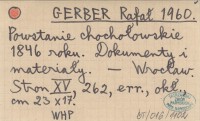 GERBER Rafał 1960.
Powstanie chochołowskie
1846 roku. Dokumenty i
materiały. — Wrocław.
Stron XV, 262, err., okł.
cm 23 x 17.
WHP